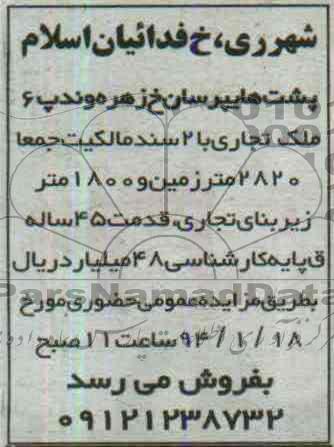 شهرری،خ فدائیان اسلام
پشت هایپرسان خ زهره وند پ ۶
ملک تجاری با ۲ سند مالکیت جمعا
۲۸۲۰ متر زمین و ۱۸۰۰ متر
زیربنای تجاری، قدمت ۴۵ ساله
ق پایه کارشناسی ۴۸ میلیارد ریال
بطریق مزایده عمومی حضوری مورخ
۹۴/۱/۱۸ ساعت ۱۱ صبح
بفروش می رسد
۰۹۱۲۱۲۳۸۷۳۲
ParsNamadData